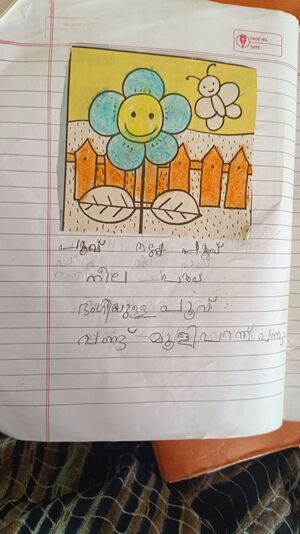 PAGE NO.
DATE:
പൂവ് നല്ല പൂവ്
നീല
ഭംഗിയുള്ള പൂവ്.
വണ്ട് മൂളി പറന്ന് വന്നു